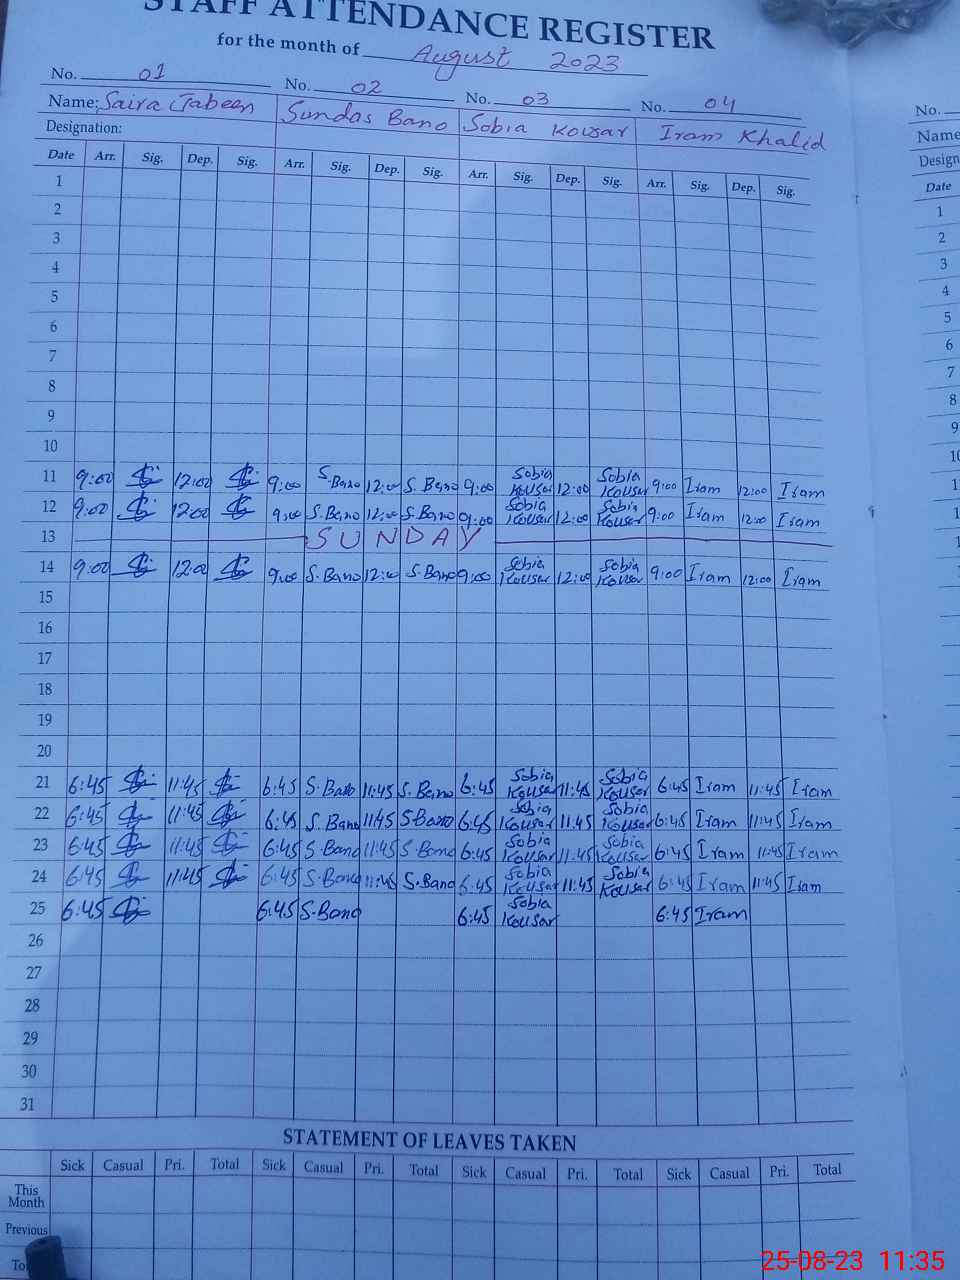 STAFF ATTENDANCE REGISTER
for the month of August 2023
No. 01 No. 02 No. 03 No. 04 No.
Name: Saira Jabeen Sundas Bano Sobia Kousar Iram Khalid Name
Designation: Design
Date Arr. Sig. Dep. Sig. Arr. Sig. Dep. Sig. Arr. Sig. Dep. Sig. Arr. Sig. Dep. Sig. Date
1 1
2 2
3 3
4 4
5 5
6 6
7 7
8 8
9 9
10 10
11 9:00 12:00 9:00 S.Bano 12:00 S.Bano 9:00 Sobia Kousar 12:00 Sobia Kousar 9:00 Iram 12:00 Iram
12 9:00 12:00 9:00 S.Bano 12:00 S.Bano 9:00 Sobia Kousar 12:00 Sobia Kousar 9:00 Iram 12:00 Iram
13 SUNDAY
14 9:00 12:00 9:00 S.Bano 12:00 S.Bano 9:00 Sobia Kousar 12:00 Sobia Kousar 9:00 Iram 12:00 Iram
15
16
17
18
19
20
21 6:45 11:45 6:45 S.Bano 11:45 S.Bano 6:45 Sobia Kousar 11:45 Sobia Kousar 6:45 Iram 11:45 Iram
22 6:45 11:45 6:45 S.Bano 11:45 S.Bano 6:45 Sobia Kousar 11:45 Sobia Kousar 6:45 Iram 11:45 Iram
23 6:45 11:45 6:45 S.Bano 11:45 S.Bano 6:45 Sobia Kousar 11:45 Sobia Kousar 6:45 Iram 11:45 Iram
24 6:45 11:45 6:45 S.Bano 11:45 S.Bano 6:45 Sobia Kousar 11:45 Sobia Kousar 6:45 Iram 11:45 Iram
25 6:45 6:45 S.Bano 6:45 Sobia Kousar 6:45 Iram
26
27
28
29
30
31
STATEMENT OF LEAVES TAKEN
Sick Casual Pri. Total Sick Casual Pri. Total Sick Casual Pri. Total Sick Casual Pri. Total
This Month
Previous
25-08-23 11:35